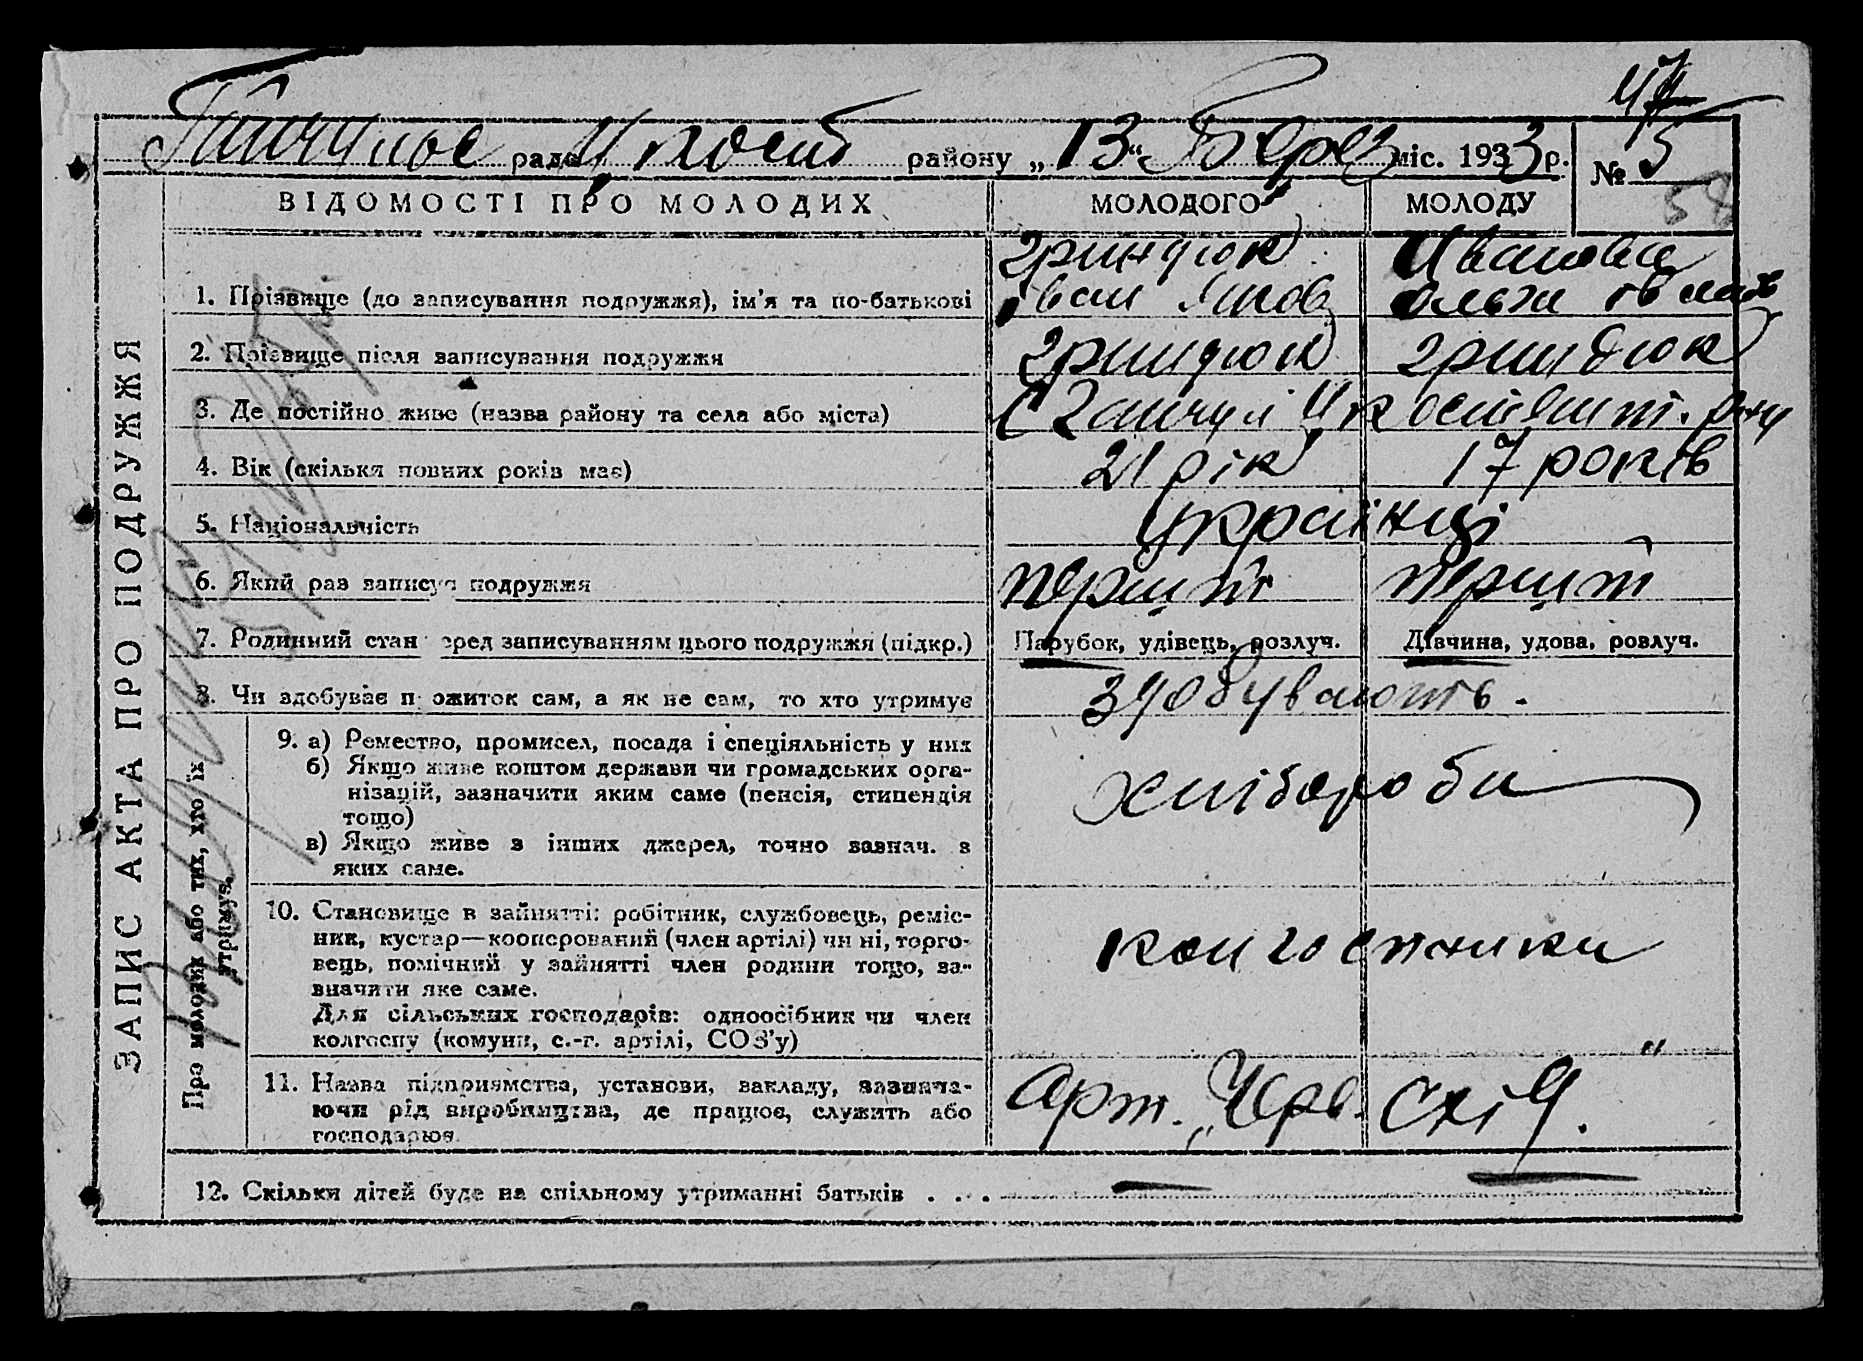 47
рада районуу „13“ Берез міс. 1933 р. № 5
54
ВІДОМОСТІ ПРО МОЛОДИХ МОЛОДОГО МОЛОДУ
ЗАПИС АКТА ПРО ПОДРУЖЖЯ
1. Прізвище (до записування подружжя), ім’я та по-батькові Гриндюк Іван Яков Иванова Ольга
2. Прізвище після записування подружжя Гриндюк Гриндюк
3. Де постійно живе (назва району та села або міста)
4. Вік (скільки повних років має) 21 рік 17 років
5. Національність Українці
6. Який раз записує подружжя перший перший
7. Родинний стан перед записуванням цього подружжя (підкр.) Парубок, удівець, розлуч. Дівчина, удова, розлуч.
8. Чи здобуває прожиток сам, а як не сам, то хто утримує здобувають.
Про молодих або тих, хто їх
утримує.
9. а) Ремество, промисел, посада і спеціяльність у них
б) Якщо живе коштом держави чи громадських орга-
нізацій, зазначити яким саме (пенсія, стипендія
тощо)
в) Якщо живе з інших джерел, точно зазнач. з
яких саме.
хлібороби
10. Становище в зайнятті: робітник, службовець, реміс-
ник, кустар—кооперований (член артілі) чи ні, торго-
вець, помічний у зайнятті член родини тощо, за-
значити яке саме.
Для сільських господарів: одноосібник чи член
колгоспу (комуни, с.-г. артілі, СОЗ’у)
колгоспники
11. Назва підприємства, установи, закладу, зазнача-
ючи рід виробництва, де працює, служить або
господарює.
Арт. „Черв. Схід.“
12. Скільки дітей буде на спільному утриманні батьків . . . — —